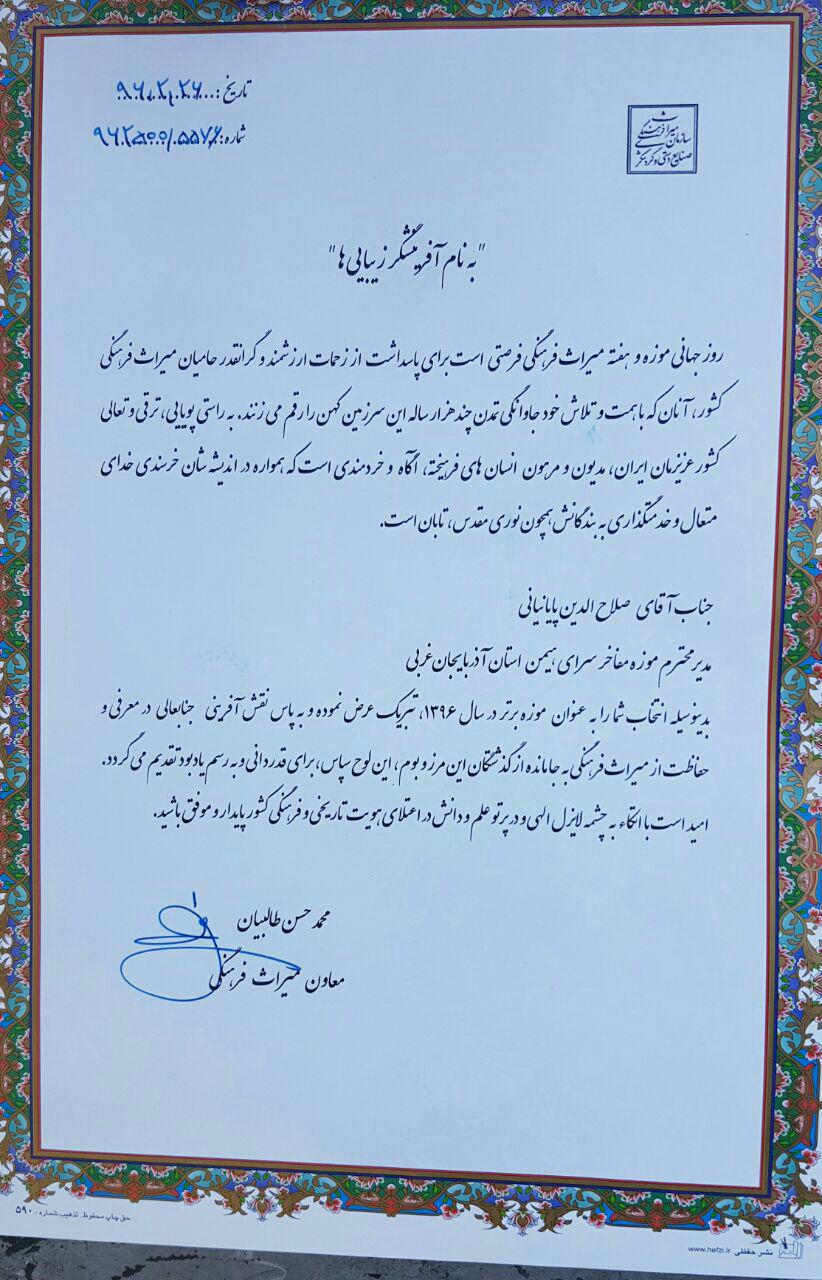 تاریخ: ۹۶،۲،۲۶
شماره: ۹۶۲۵۰۰/۵۵۷۶
سازمان میراث فرهنگی
صنایع دستی و گردشگری
"به نام آفرینشگر زیبایی ها"
روز جهانی موزه و هفته میراث فرهنگی فرصتی است برای پاسداشت از زحمات ارزشمند و گرانقدر حامیان میراث فرهنگی
کشور، آنان که با همت و تلاش خود جاودانگی تمدن چند هزار ساله این سرزمین کهن را رقم می زنند. به راستی پویایی، ترقی و تعالی
کشور عزیزمان ایران، مدیون و مرهون انسان های فرهیخته، آگاه و خردمندی است که همواره در اندیشه شان خرسندی خدای
متعال و خدمتگذاری به بندگانش همچون نوری مقدس، تابان است.
جناب آقای صلاح الدین پایانیانی
مدیر محترم موزه مفاخر سرای هیمن استان آذربایجان غربی
بدینوسیله انتخاب شما را به عنوان موزه برتر در سال ۱۳۹۶، تبریک عرض نموده و به پاس نقش آفرینی جنابعالی در معرفی و
حفاظت از میراث فرهنگی به جا مانده از گذشتگان این مرز و بوم، این لوح سپاس، برای قدردانی و به رسم یادبود تقدیم می گردد.
امید است با اتکاء به چشمه لایزل الهی و در پرتو علم و دانش در اعتلای هویت تاریخی و فرهنگی کشور پایدار و موفق باشید.
محمد حسن طالبیان
معاون میراث فرهنگی
حق چاپ محفوظ. تذهیب شماره: ۵۹۰
نشر حفظی www.hefzi.ir